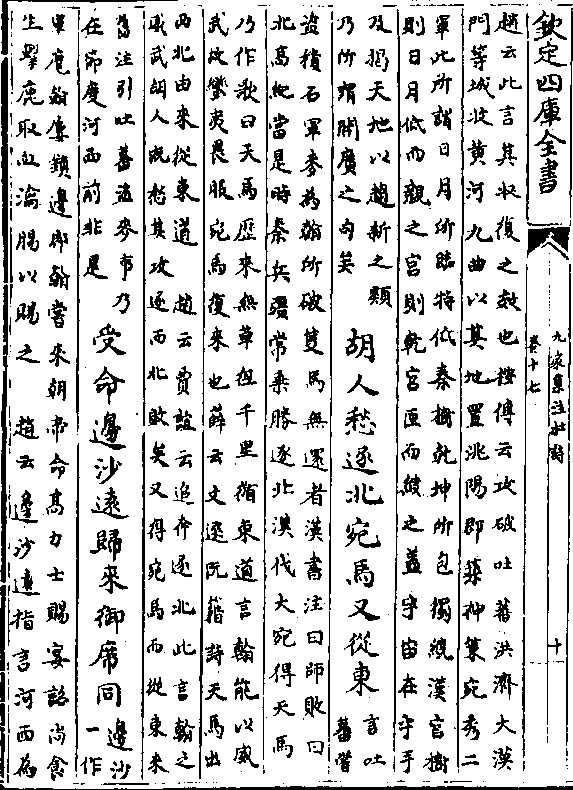 欽定四庫全書
九家集注杜詩
卷十七
十
趙云此言其收復之數也按傳云攻破吐蕃洪濟大漠
門等城收黃河九曲以其地置洮陽郡築神策宛秀二
軍此所謂日月所臨特低秦樹乾坤所包獨繞漢宮樹
則日月低而觀之宮則乾宮匝而繞之蓋宇宙在乎手
及揭天地以趨新之類
乃所謂開廣之句矣
胡人愁逐北宛馬又從東
言吐
蕃嘗
盜積石軍麥為翰所破隻馬無還者漢書注曰師敗曰
北高紀當是時秦兵彊常乘勝逐北漢伐大宛得天馬
乃作歌曰天馬歷來無草徑千里循東道言翰能以威
武攻蠻夷畏服宛馬復來也薛云文選阮籍詩天馬出
西北由來從東道 趙云賈誼云追奔逐北此言翰之
威武胡人既愁其攻逐而北敗矣又得宛馬而從東來
舊注引吐蕃盜麥事乃
在節度河西前非是
受命邊沙遠歸來御席同
邊沙
一作
軍麾翰 類邊郡翰嘗來朝帝命高力士賜宴詔尚食
生擊鹿取血瀹腸以賜之 趙云邊沙遠指言河西為